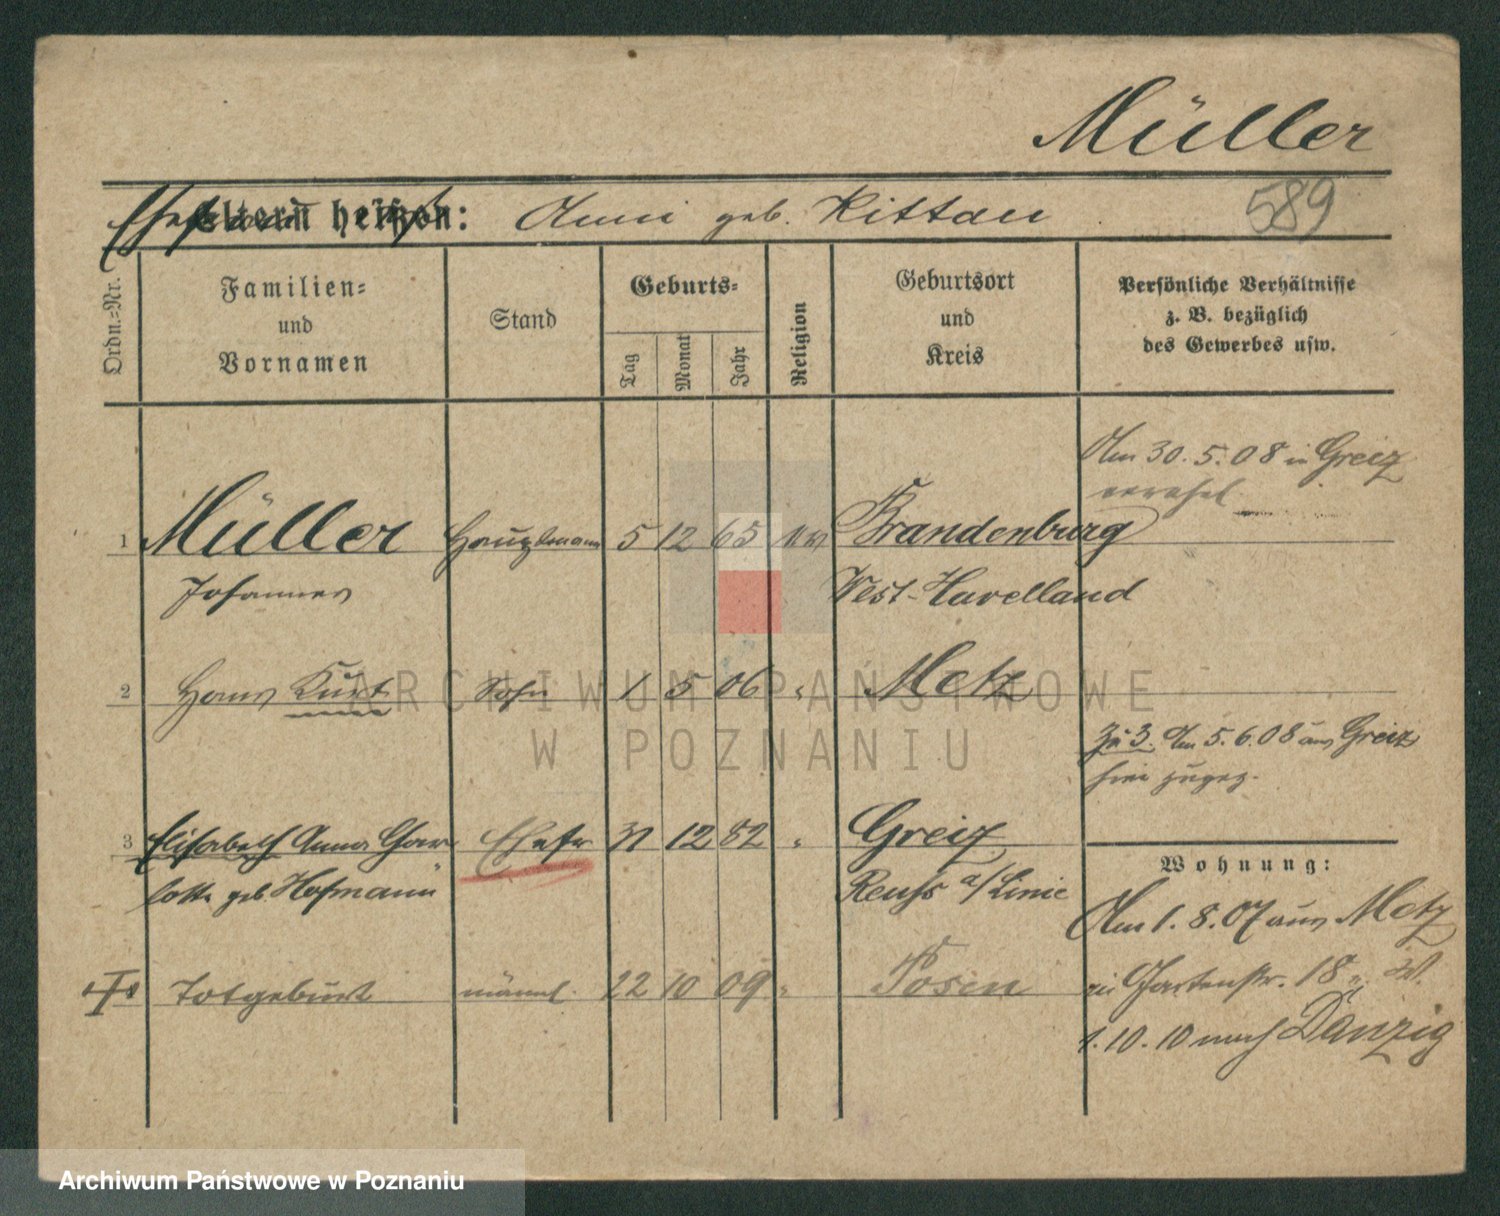 Müller
Eltern heißen: Anni geb. Kittan
589
Ordn.-Nr.
Familien-
und
Vornamen
Stand
Geburts-
Tag
Monat
Jahr
Religion
Geburtsort
und
Kreis
Persönliche Verhältnisse
z. B. bezüglich
des Gewerbes usw.
Am 30.5.08 in Greiz
verehel.
1 Müller Hauptmann 5 12 65 Brandenburg
Johannes West-Havelland
2 Hans Kurt Sohn 1 5 06 " Metz
Zu 3. Am 5.6.08 aus Greiz
hier zugez.
3 Elisabeth Anna Char Ehefr 31 12 82 " Greiz
lotte geb. Hofmann Reuss a/Linie
Wohnung:
Am 1.8.07 aus Metz
Totgeburt männl. 22 10 09 " Posen
Gartenstr. 18
1.10.10 nach Danzig
ARCHIWUM PAŃSTWOWE
W POZNANIU
Archiwum Państwowe w Poznaniu